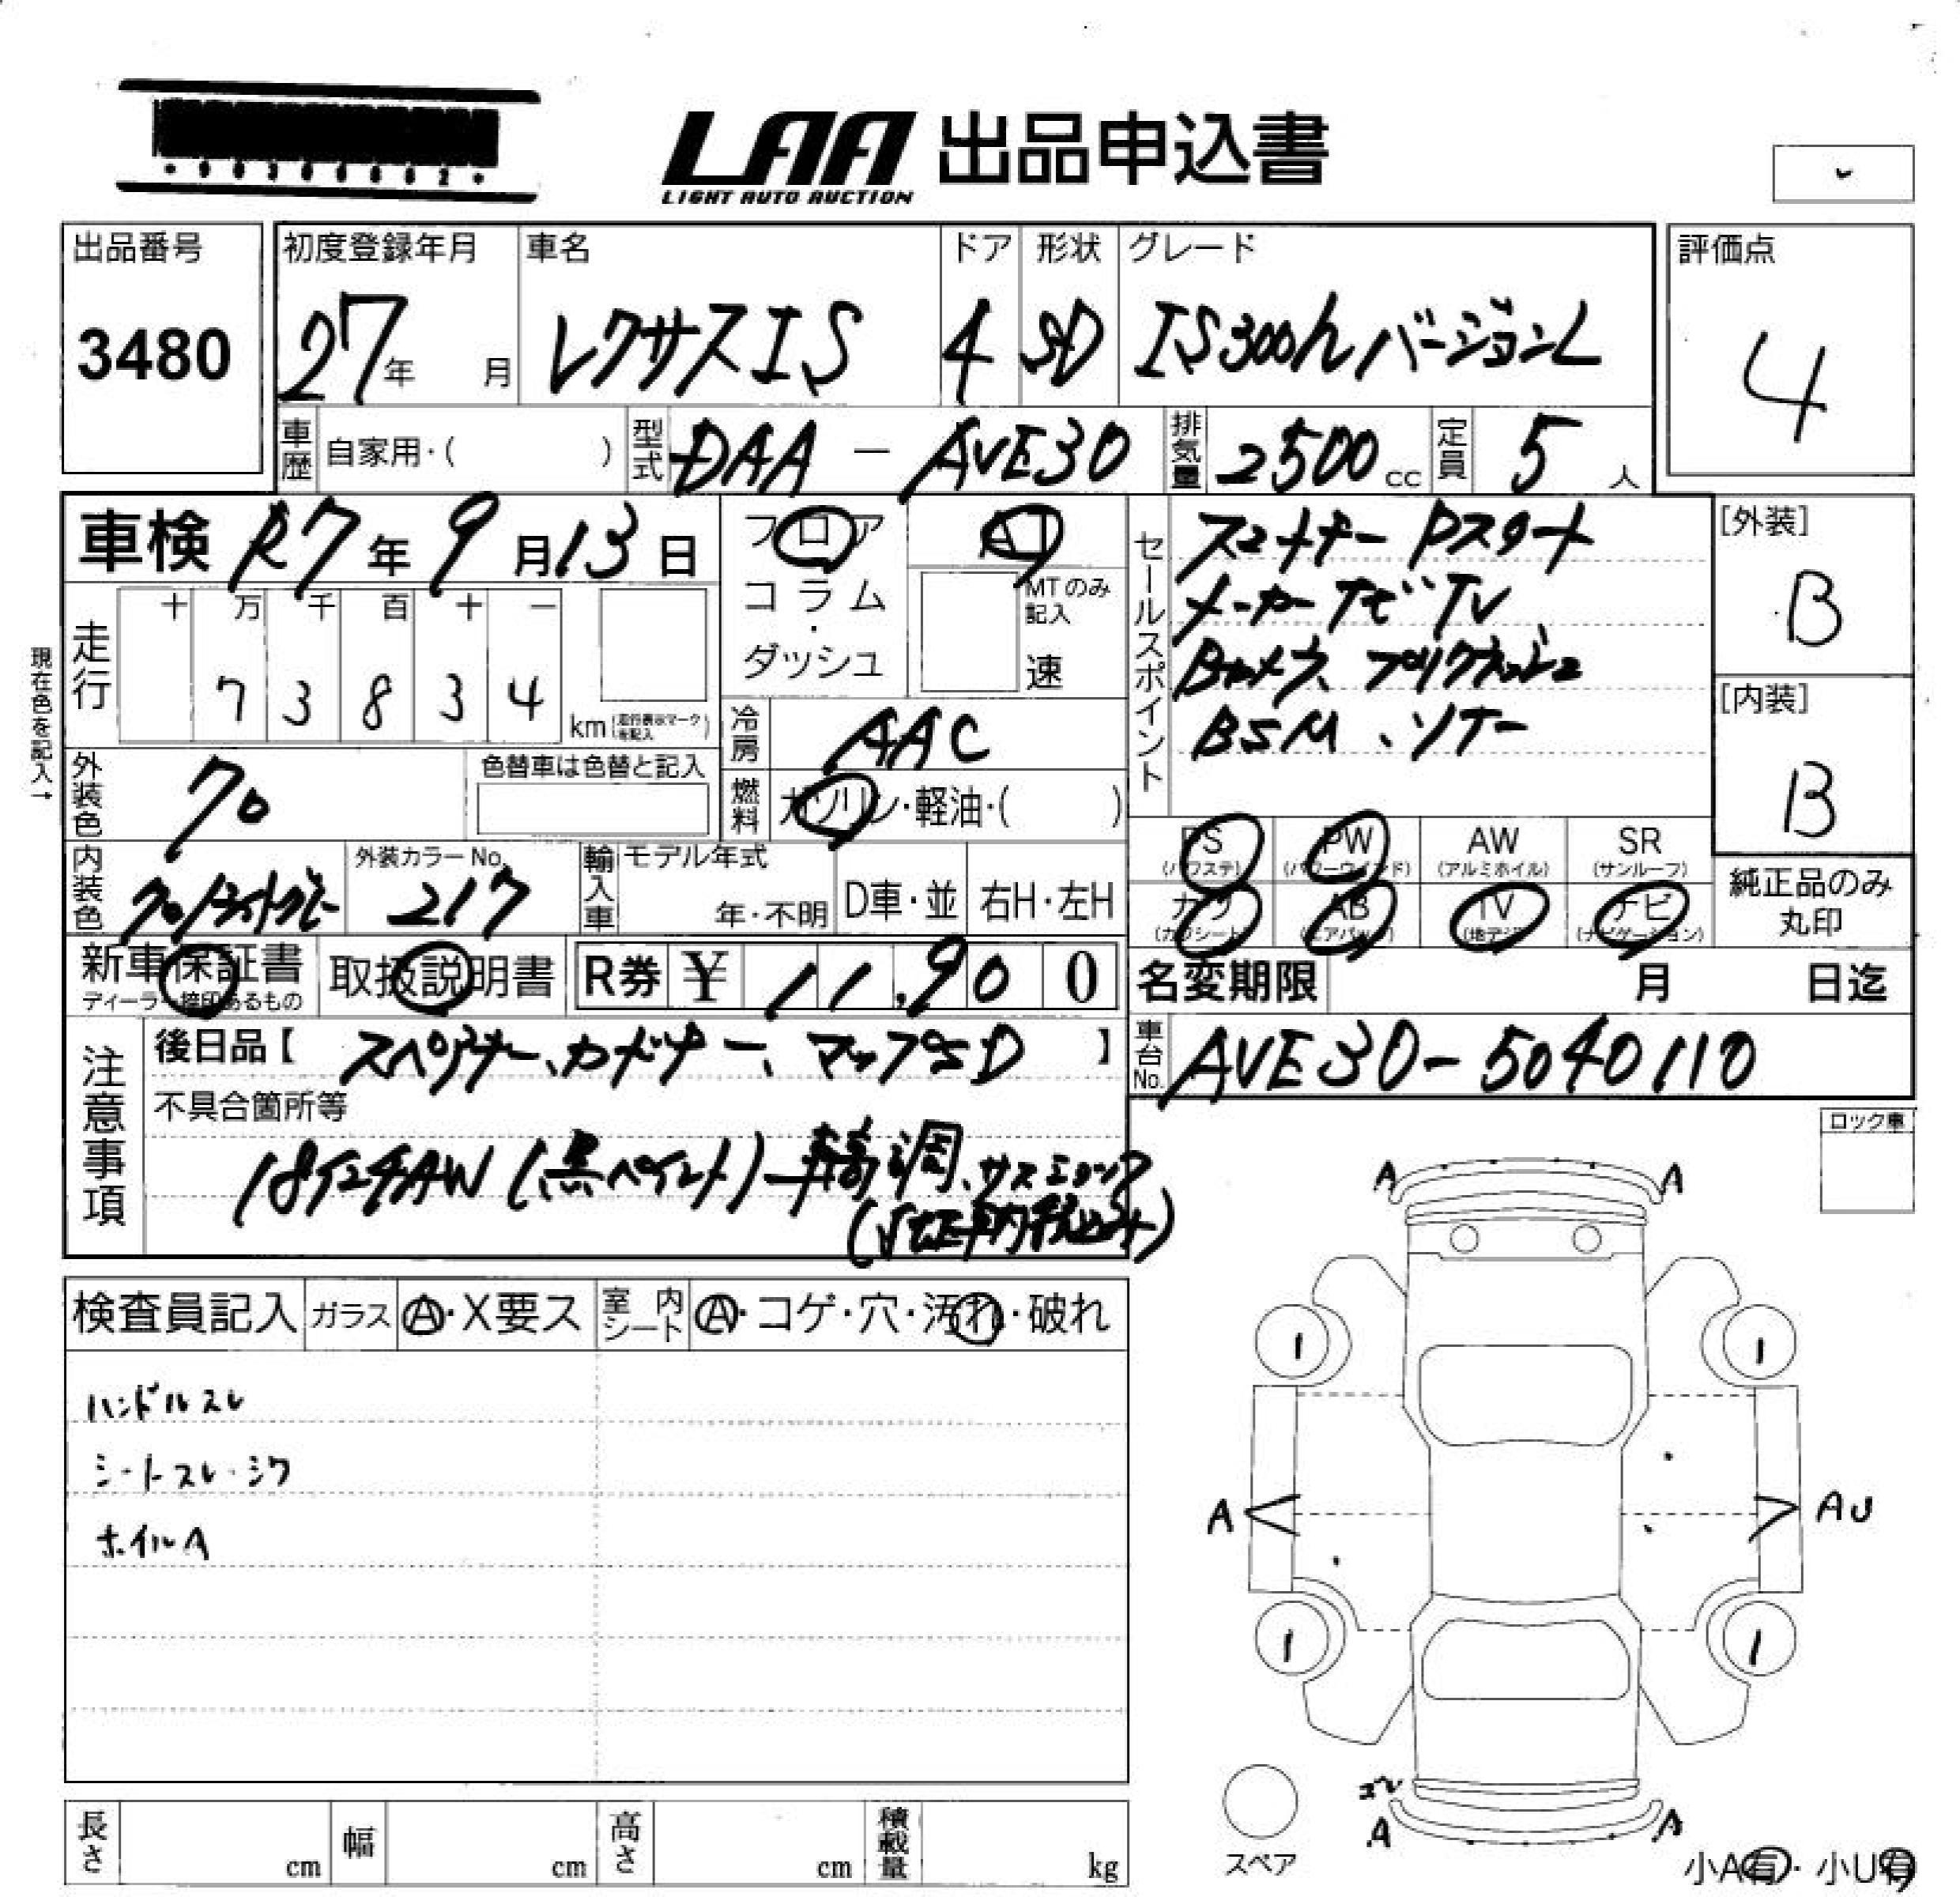 LAA 出品申込書
LIGHT AUTO AUCTION
出品番号
3480
初度登録年月
27年 月
車名
レクサスIS
ドア
4
形状
SD
グレード
IS300h バージョンL
評価点
4
車歴 自家用・( )
型式 DAA - AVE30
排気量 2500cc
定員 5人
車検 R7年9月13日
フロア
コラム
・
ダッシュ
AT
MTのみ記入
速
走行
十 万 千 百 十 一
7 3 8 3 4
km(走行表示マークを記入)
現在色を記入→
冷房 AAC
燃料 ガソリン・軽油・( )
セールスポイント
スマートキー Pスタート
メーカーナビ TV
Bカメラ、プリクラッシュ
BSM、ソナー
[外装]
B
[内装]
B
外装色 クロ
色替車は色替と記入
内装色
外装カラーNo.
217
輸入車 モデル年式
年・不明
D車・並
右H・左H
PS
(パワステ)
PW
(パワーウインド)
AW
(アルミホイル)
SR
(サンルーフ)
カワ
(カワシート)
AB
(エアバッグ)
TV
(地デジ)
ナビ
(ナビゲーション)
純正品のみ
丸印
新車保証書
ディーラー捺印あるもの
取扱説明書
R券 ¥ 11,900
名変期限 月 日迄
車台No. AVE30-5040110
注意事項
後日品【 スペアキー、カードキー、マップSD 】
不具合箇所等
18インチAW(黒ペイント)車高調、サスミョック
ロック車
検査員記入
ガラス Ⓐ・X要ス
室内シート Ⓐ・コゲ・穴・汚れ・破れ
ハンドルスレ
シートスレ・シワ
ホイルA
A A
1 1
A AU
1 1
A A
スペア
小A有・小U有
長さ cm
幅 cm
高さ cm
積載量 kg